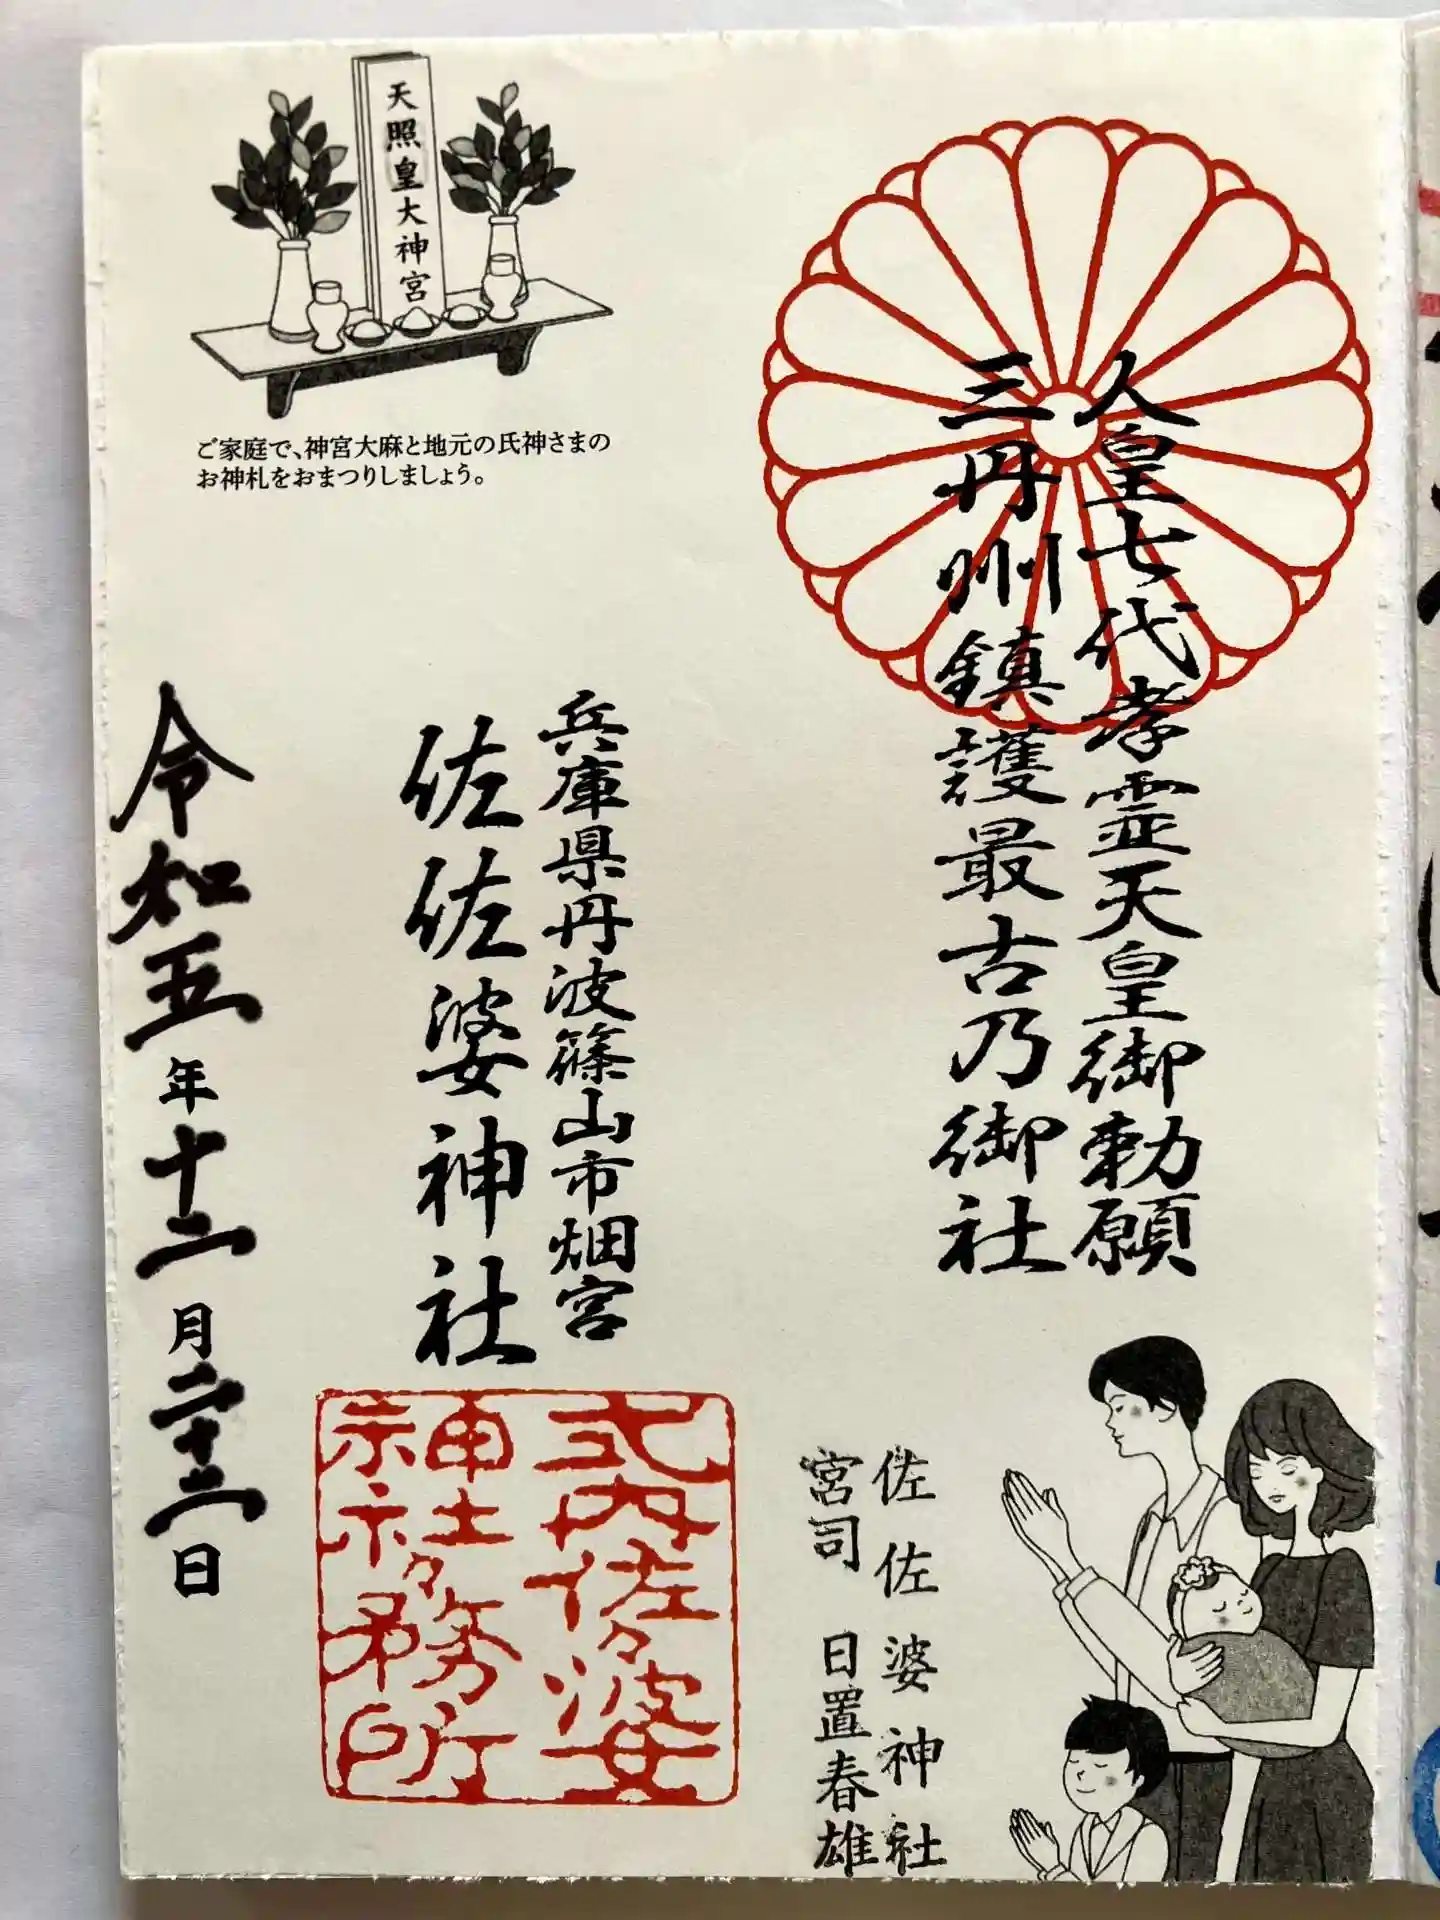 人皇七代孝霊天皇御勅願
三丹州鎮護最古乃御社
天照皇大神宮
ご家庭で、神宮大麻と地元の氏神さまの
お神札をおまつりしましょう。
兵庫県丹波篠山市畑宮
佐佐婆神社
令和五年十二月二十二日
式内佐々婆
神社々務所
佐佐婆神社
宮司 日置春雄